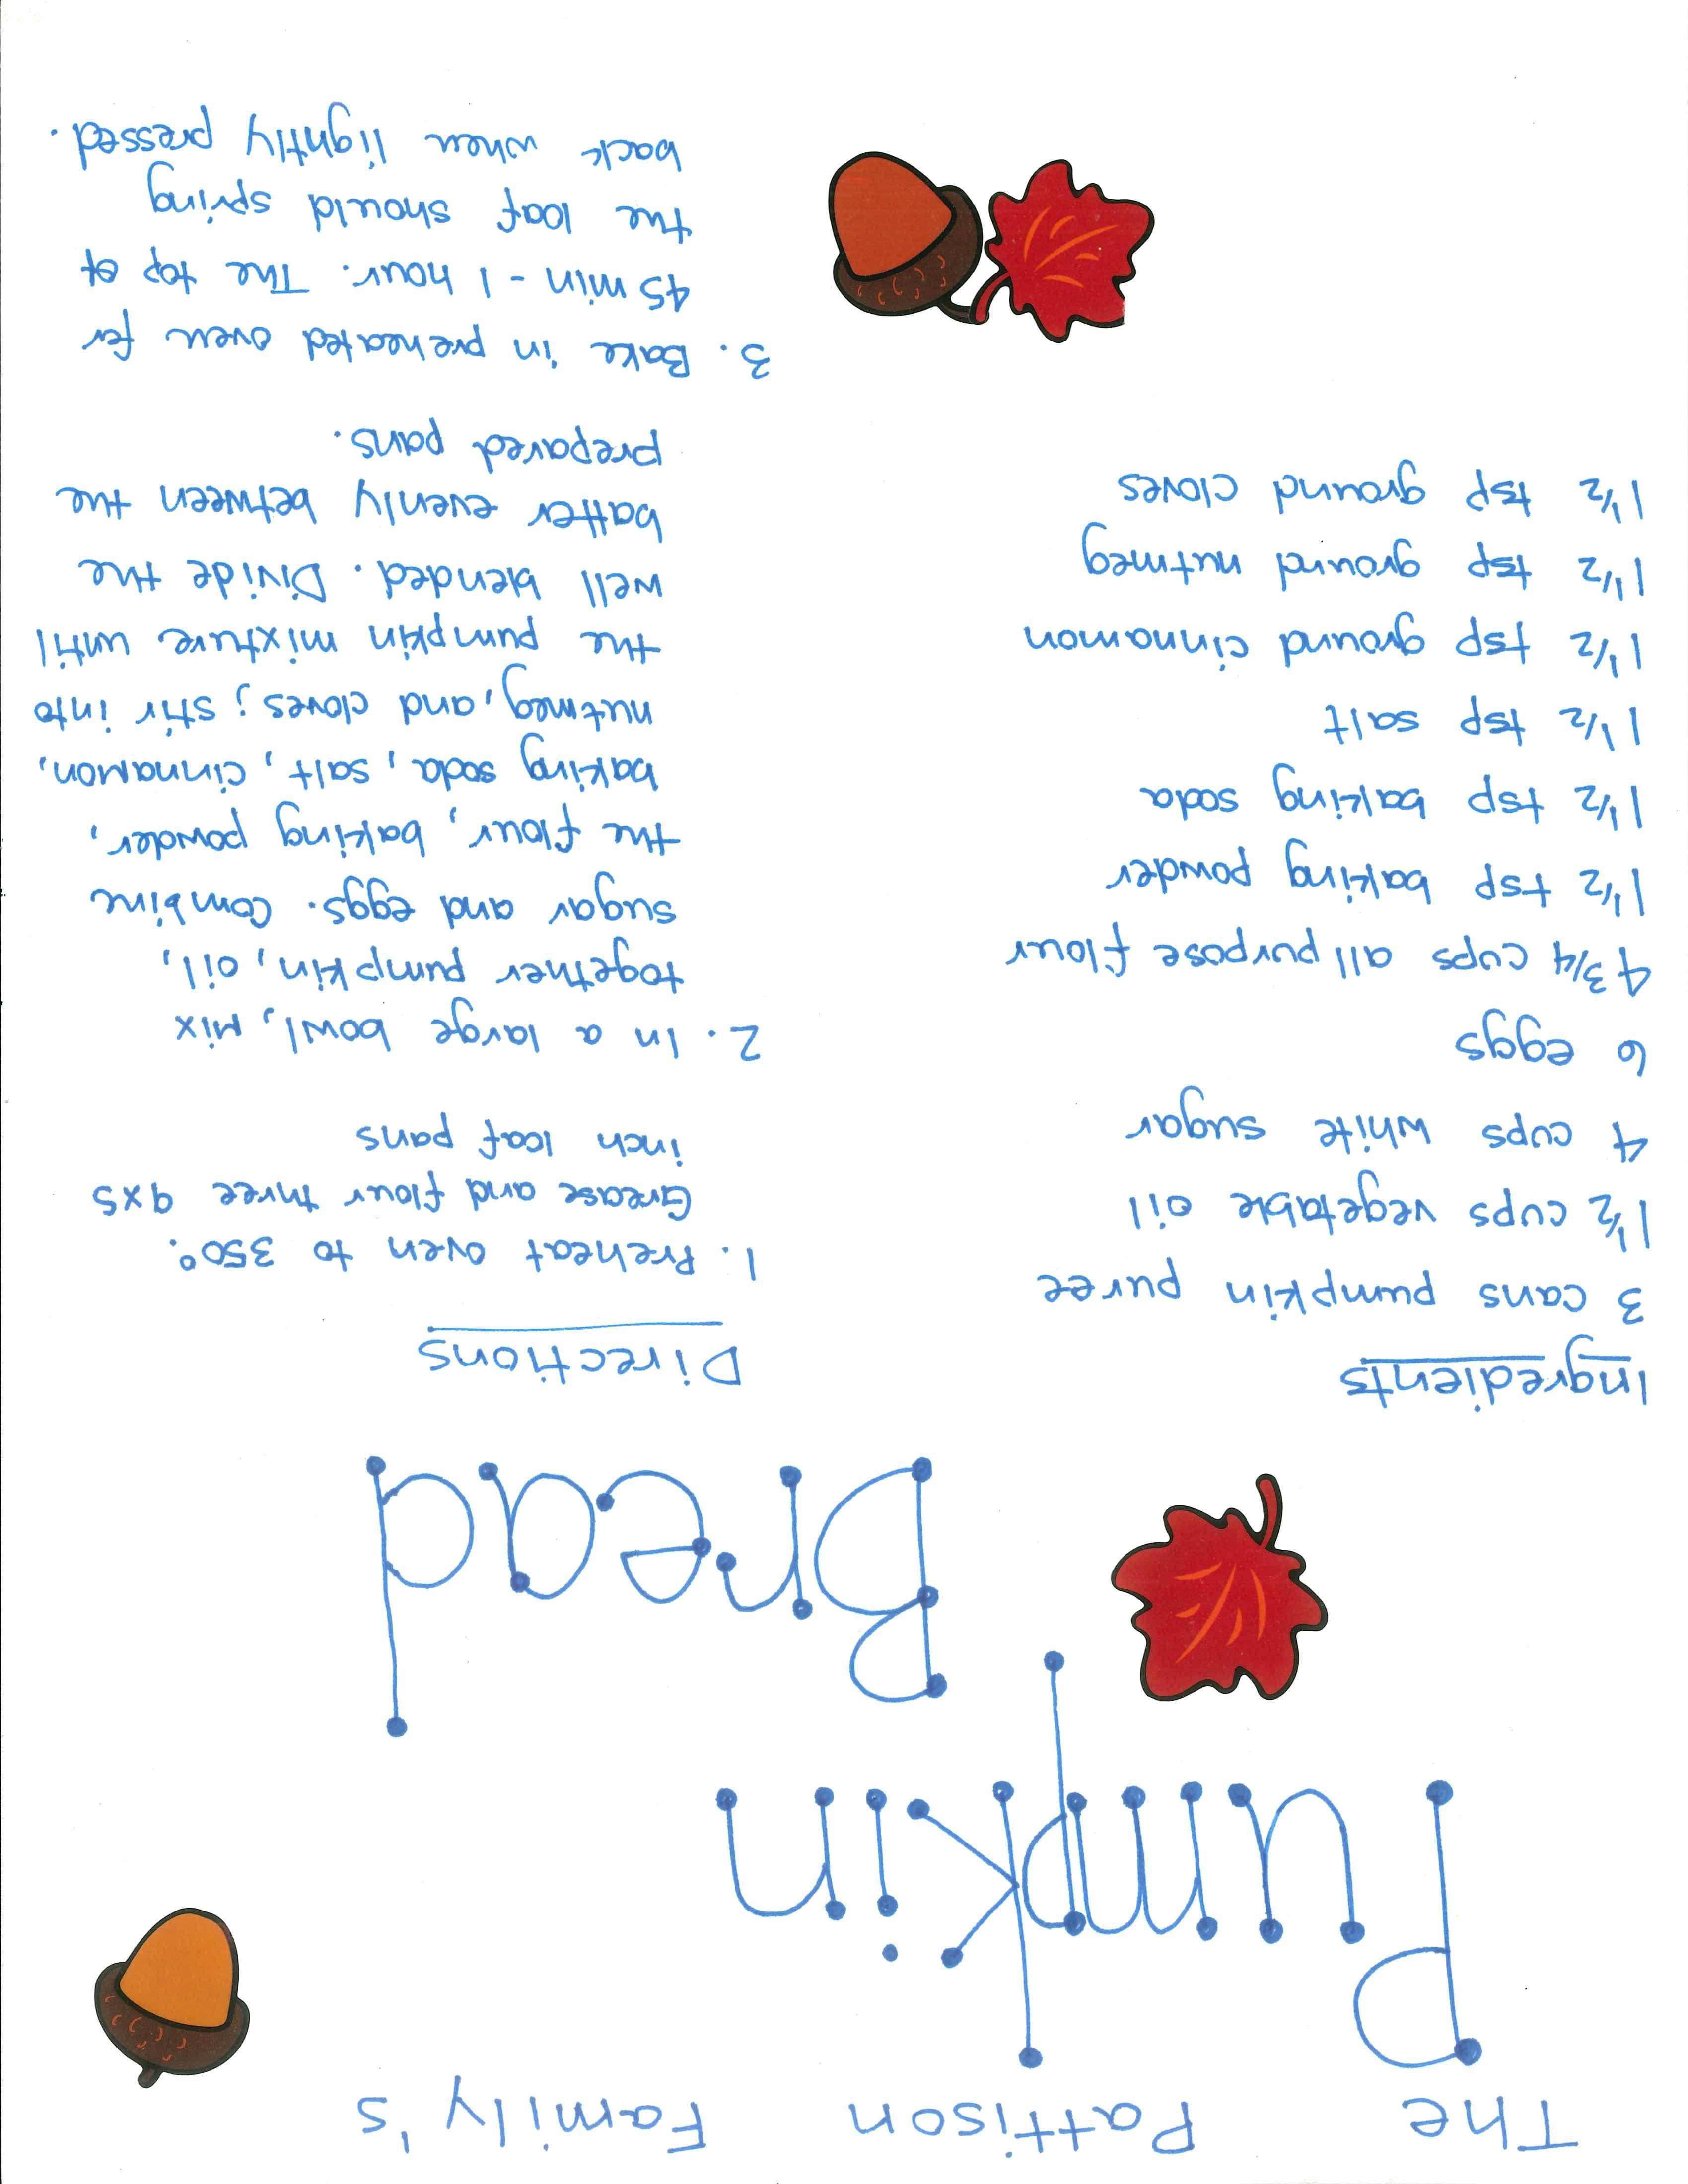 The Pattison Family's
Pumpkin
Bread
Ingredients
3 cans pumpkin puree
1 1/2 cups vegetable oil
4 cups white sugar
6 eggs
4 3/4 cups all purpose flour
1 1/2 tsp baking powder
1 1/2 tsp baking soda
1 1/2 tsp salt
1 1/2 tsp ground cinnamon
1 1/2 tsp ground nutmeg
1 1/2 tsp ground cloves
Directions
1. Preheat oven to 350°.
Grease and flour three 9x5
inch loaf pans
2. In a large bowl, mix
together pumpkin, oil,
sugar and eggs. Combine
the flour, baking powder,
baking soda, salt, cinnamon,
nutmeg, and cloves; stir into
the pumpkin mixture until
well blended. Divide the
batter evenly between the
prepared pans.
3. Bake in preheated oven for
45 min - 1 hour. The top of
the loaf should spring
back when lightly pressed.